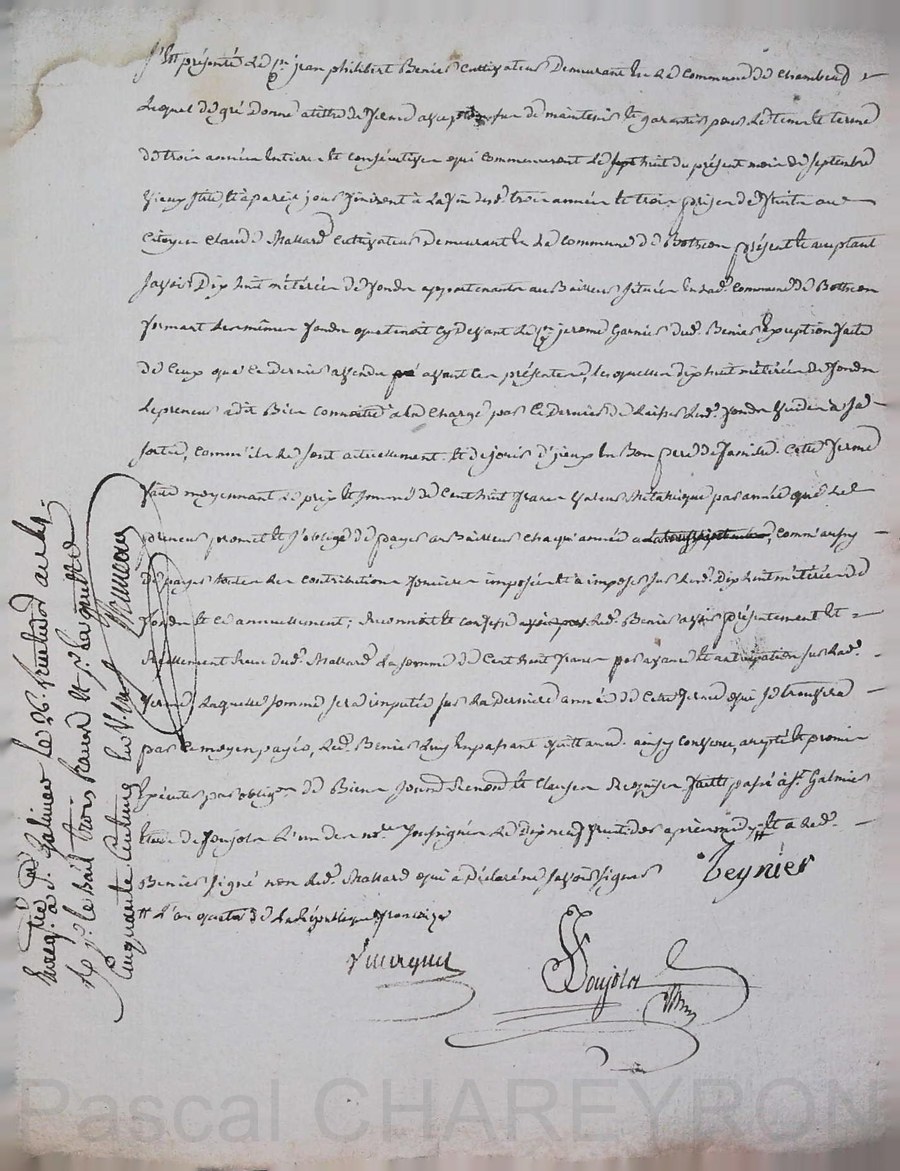 S'est présenté le Cn jean philibert Benier Cultivateur Demeurant en la Commune de Chambeuf
Lequel de gré Donne a titre de ferme avec pro de maintenir et garantir pour le tems et terme
de trois années Entieres et consécutives qui commenceront le huit du présent mois de Septembre
vieux stile, et à pareil jour finiront à la fin desd. trois années et trois prises de fruits au
Citoyen Claude Mallard Cultivateur Demeurant en la Commune de Bothéon présent et acceptant
savoir Dix huit métérées de fonds appartenants au Bailleur situées en lad. Commune de Bothéon
formant les mêmes fonds que tenoit cy devant le Cn jerome Garnier dud. Benier Exception faite
de Ceux que ce Dernier a vendu avant ces présentes, lesquelles dix huit métérées de fonds
le preneur a dit Bien connoitre a la charge par ce Dernier de laisser lesd. fonds vuides à sa
sortie, comm'ils le sont actuellement et de jouir d'yceux en Bon pere de famille. Cette ferme
faite moyennant le prix et somme de Cent huit francs valeur métalique par année que le
preneur promet et s'oblige de payer au Bailleur chaqu'année, comm'aussy
de payer toutes les contributions foncieres imposées et a imposer sur lesd. Dix huit métérées de
fonds et ce annuellement; Reconnoit et confesse led. Benier avoir présentement et
Réellement Reçu dud. Mallard la somme de Cent huit francs par avance et anticipation sur lad.
ferme, laquelle somme sera imputée sur la Derniere année de Cette ferme qui se trouvera
par ce moyen payée, led. Benier luy En passant quittance. ainsy convenu, accepté et promis
Exécuter par oblign de Biens Soumd Renond et Clauses Requises fait et passé à St Galmier
Etude de Soujols L'un des nores Soussignés le Dix neuf fruitidor après midy et a led.
Benier signé non led. Mallard qui a Déclaré ne savoir signer
# L'an quatre de la République française
Soujols
Enregtré à St Galmier le 26 fructidor an 4e
Rç pr le bail trois francs et pr la quittce
Cinquante Centimes